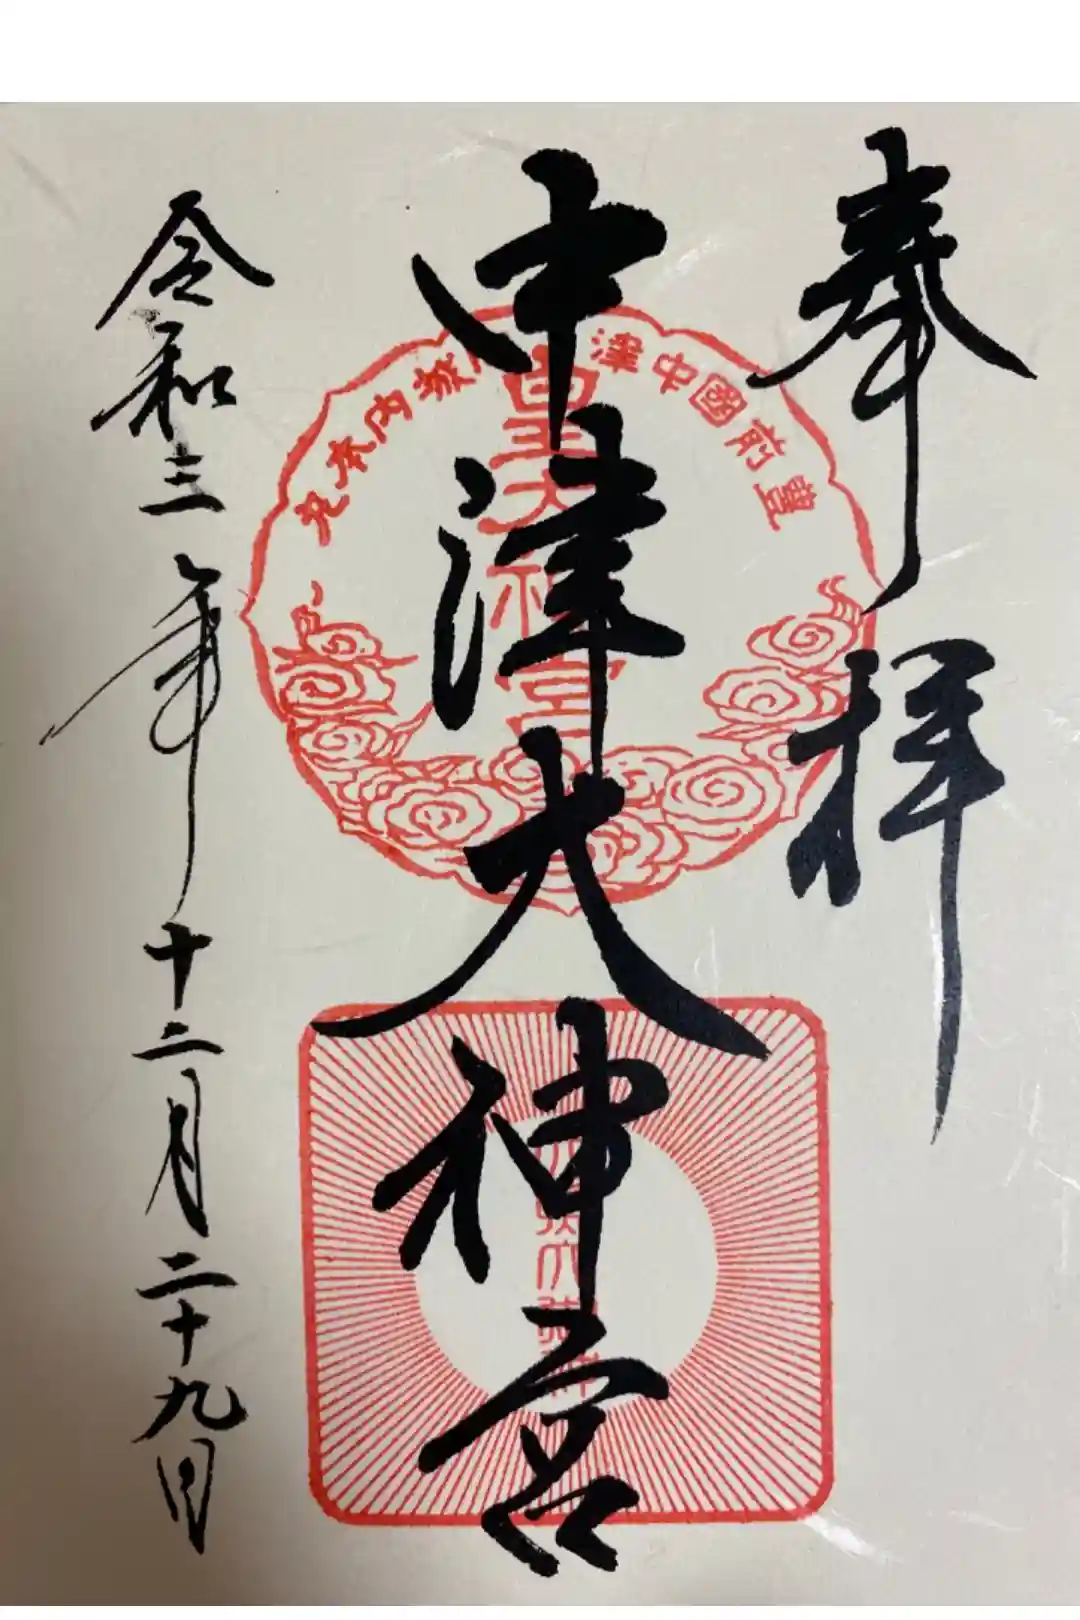 奉拝
中津大神宮
令和三年十二月二十九日
豊前國中津
丸本内
皇大神宮